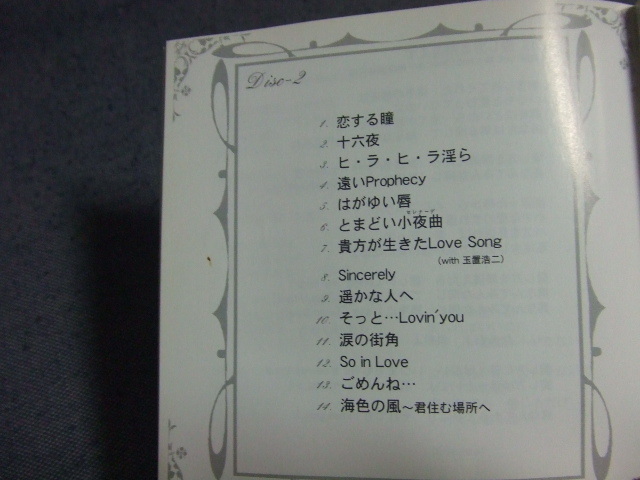 Disc-2
1. 恋する瞳
2. 十六夜
3. ヒ・ラ・ヒ・ラ淫ら
4. 遠いProphecy
5. はがゆい唇
6. とまどい小夜曲
セレナーデ
7. 貴方が生きたLove Song
(with 玉置浩二)
8. Sincerely
9. 遥かな人へ
10. そっと…Lovin'you
11. 涙の街角
12. So in Love
13. ごめんね…
14. 海色の風〜君住む場所へ